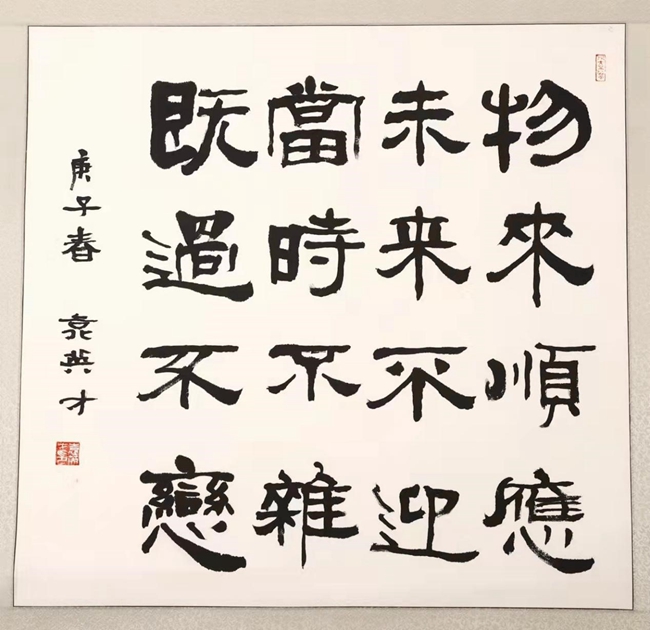 物來順應
未来不迎
當時不雜
既過不戀
庚子春 袁興才